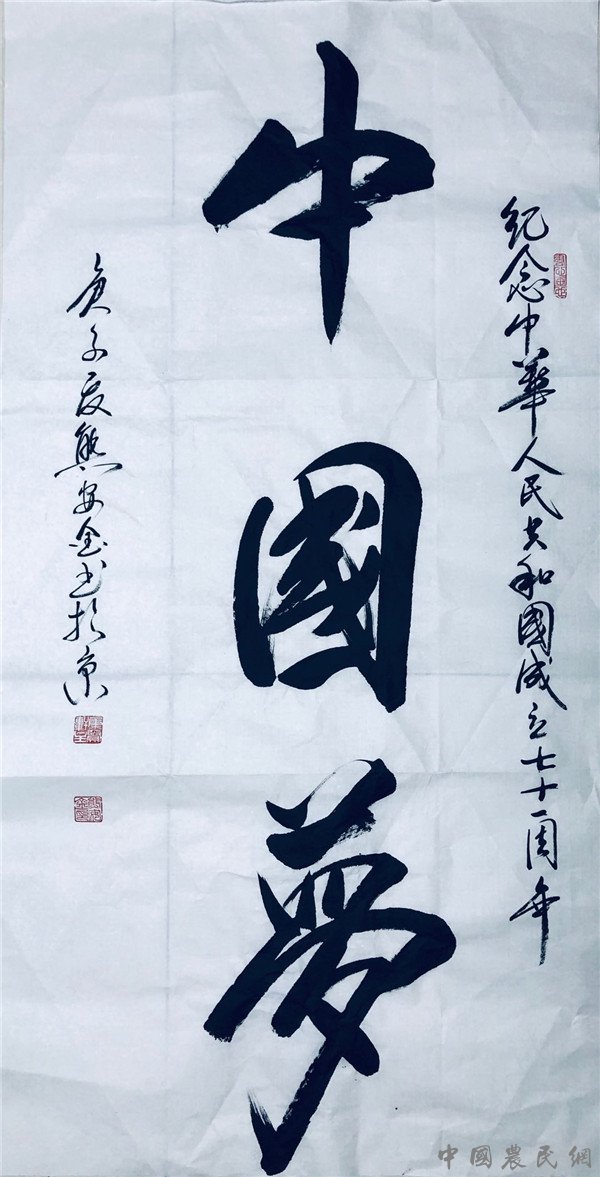 纪念中華人民共和國成立七十一周年
中國夢
庚子夏熊安金书於京
中國農民網